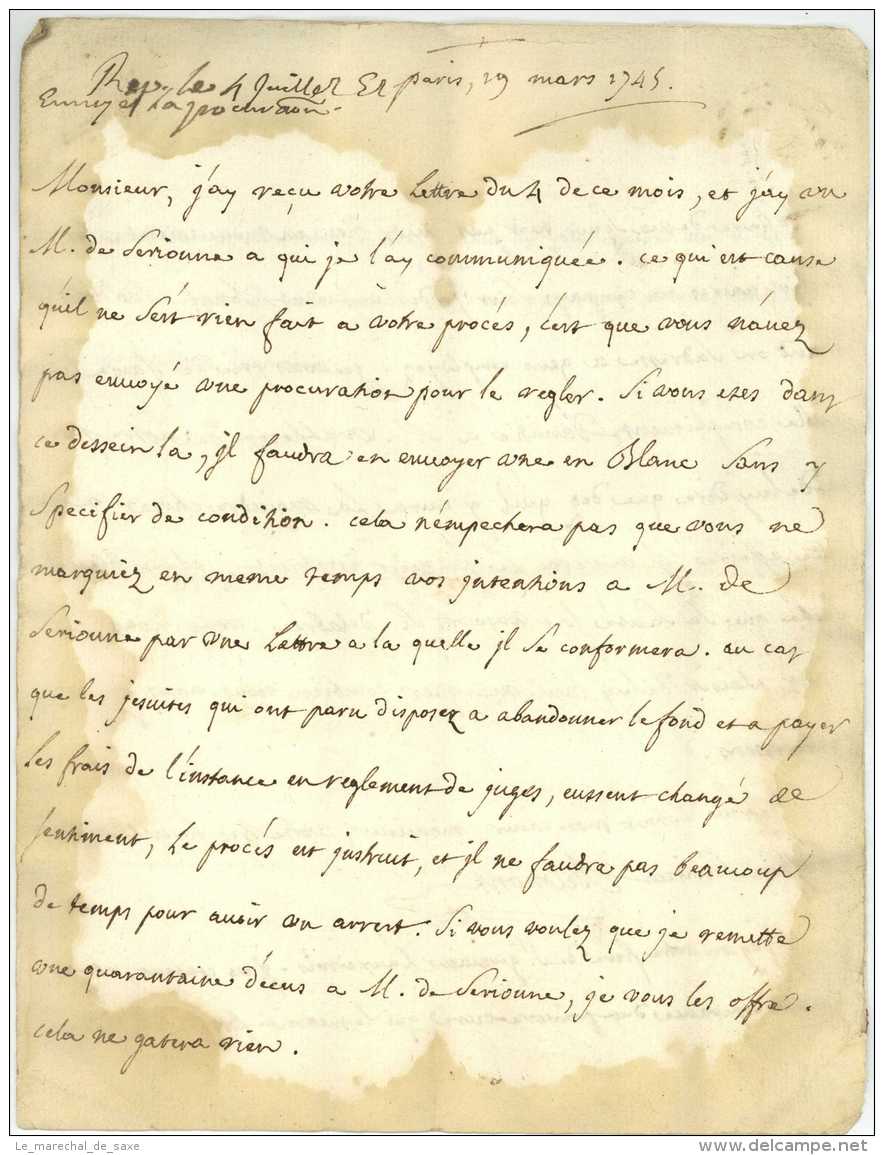 Rep. le 4 Juillet Et paris, 19 mars 1745.
Envoyé la procuraôn.
Monsieur, j'ay reçu votre Lettre du 4 de ce mois, et j'ay vu
M. de Serionne a qui je l'ay communiquée. ce qui est cause
qu'il ne s'est rien fait à votre procés, c'est que vous n'avez
pas envoyé une procuration pour le regler. Si vous etes dans
ce dessein la, jl faudra en envoyer une en Blanc sans y
Specifier de condition. cela n'empechera pas que vous ne
marquiez en meme temps vos jntentions a M. de
Serionne par une Lettre a la quelle jl se conformera. au cas
que les jesuites qui ont paru disposez a abandonner le fond et a payer
les frais de l'instance en reglement de juges, eussent changé de
sentiment, Le procés est jnstruit, et jl ne faudra pas beaucoup
de temps pour avoir un arrest. Si vous voulez que je remette
une quarantaine d'écus a M. de Serionne, je vous les offre.
cela ne gatera rien.
Le_marechal_de_saxe
www.delcampe.net